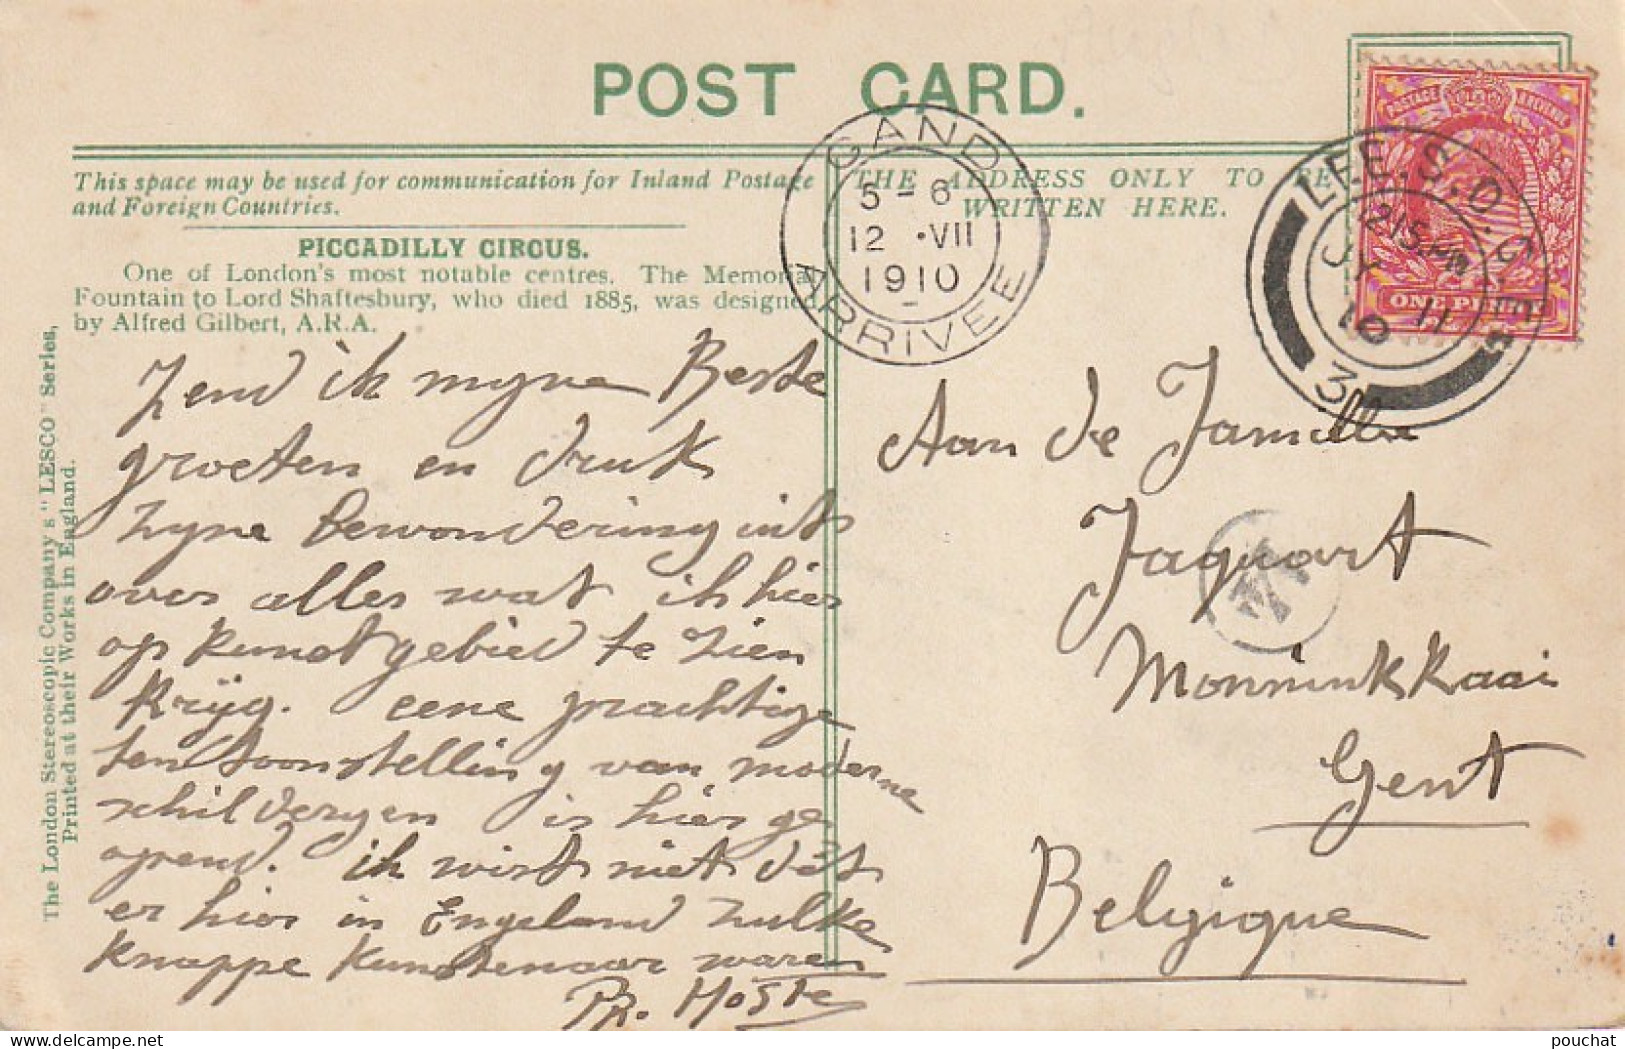 POST CARD.
This space may be used for communication for Inland Postage
and Foreign Countries.
THE ADDRESS ONLY TO BE
WRITTEN HERE.
PICCADILLY CIRCUS.
One of London's most notable centres. The Memorial
Fountain to Lord Shaftesbury, who died 1885, was designed
by Alfred Gilbert, A.R.A.
The London Stereoscopic Company's "LESCO" Series,
Printed at their Works in England.
GAND
5 - 6
12 · VII
1910
ARRIVEE
POSTAGE REVENUE
ONE PE
LEE. S.O. S.E.
1215 PM
JY 11
10
3
Zend ik myne Beste
groeten en druk
zyne bewondering uit
over alles wat ik hier
op kunstgebied te zien
krijg. eene prachtige
tentoonstelling van moderne
schilderyen is hier ge
opend. ik wist niet dat
er hier in Engeland zulke
knappe kunstenaar waren
Pr. Hoste
Aan de Familie
Jaquart
Monninkkaai
Gent
Belgique
pouchat